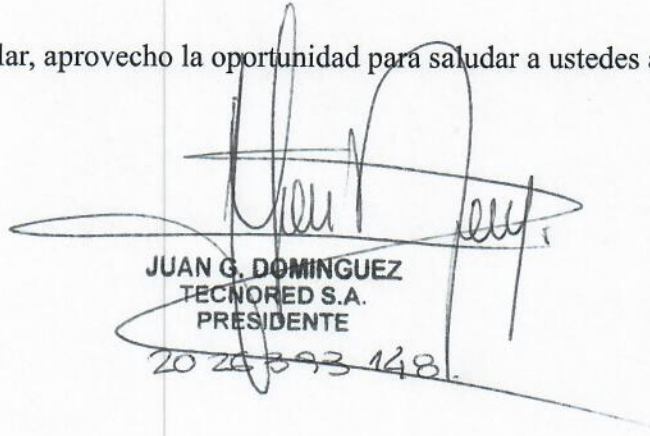 lar, aprovecho la oportunidad para saludar a ustedes
JUAN G. DOMINGUEZ
TECNORED S.A.
PRESIDENTE